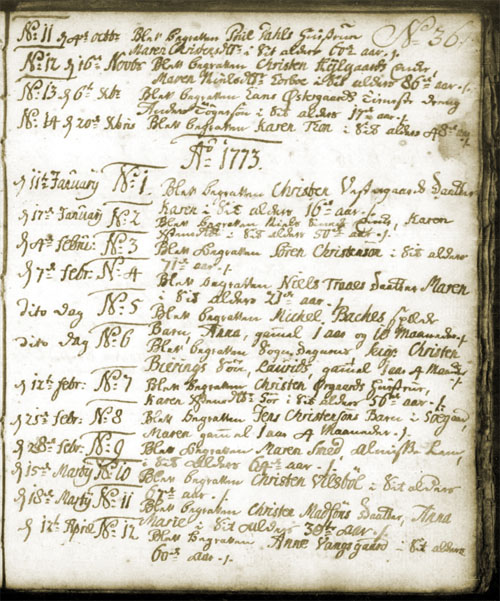 No. 36.
No 11 d 4de octbr Blev begraven Poul Dahls Hustrue
Maren Christensdtr i sit alder 60ve aar ./.
No 12 d 16de Novbr Blev begraven Christen
Maren Nielsdtr i sit alder 86 aar ./.
No 13 d 6te Xbr Blev begraven Hans Østergaards tieneste dreng
Anders i sit alder 17 aar ./.
No 14 d 20de Xbris Blev begraven Karen i sit alder 48 aar
Ao 1773.
d 11te January No 1 Blev begraven Christen Vestergaards Daatter
Karen i sit alders 16de aar ./.
d 17de January No 2 Blev begraven Niels Karen
i sit alders aar ./.
d 4de febru: No 3 Blev begraven Søren Christensøn i sit alders
aar ./.
d 7de febr: No 4 Blev begraven Niels Daatter Maren
i sit alders 21de aar ./.
dito dag No 5 Blev begraven Michel Baches
Barn, Anna, gamel 1 aar og 10 Maaneder ./.
dito dag No 6 Blev begraven Sogne Degnens, Sigr Christen
Bierings Søn, Laurids, gamel 1 aar 4 Maaneder
d 12te febr: No 7 Blev begraven Christen Ørgaards Hustrue,
Karen i sit alder 56 aar ./.
d 25de febr: No 8 Blev begraven Jens Christensøns Barn i Søegaard
Maren gamel 1 aar 4 Maaneder ./.
d 28de febr: No 9 Blev begraven Maren Smed, almisse lem,
i sit alders 64de aar ./.
d 15de Marty No 10 Blev begraven Christen i sit alders
67de aar ./.
d 18de Marty No 11 Blev begraven Christen Madsøns Daatter, Anna
Marie i sit alders 30te aar ./.
d 12te April No 12 Blev begraven Anne Vangsgaard i sit alders
60de aar ./.